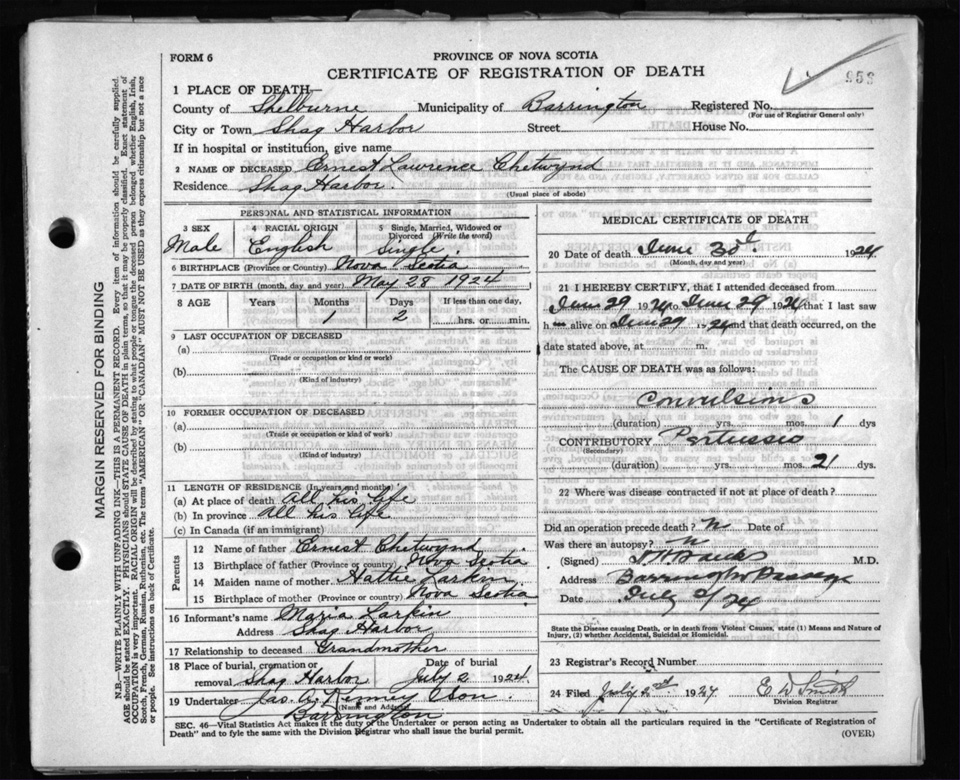 FORM 6
PROVINCE OF NOVA SCOTIA
CERTIFICATE OF REGISTRATION OF DEATH
953
1 PLACE OF DEATH—
County of Shelburne Municipality of Barrington Registered No.
(For use of Registrar General only)
City or Town Shag Harbor Street House No.
If in hospital or institution, give name
2 NAME OF DECEASED Ernest Lawrence Chetwynd
Residence Shag Harbor.
(Usual place of abode)
MARGIN RESERVED FOR BINDING
N.B.—WRITE PLAINLY WITH UNFADING INK—THIS IS A PERMANENT RECORD. Every item of information should be carefully supplied.
AGE should be stated EXACTLY. PHYSICIANS should STATE CAUSE OF DEATH in plain terms, so that it may be properly classified. Exact statement of
OCCUPATION is very important. RACIAL ORIGIN will be described by stating to what people or tongue the deceased person belonged whether English, Irish,
Scotch, French, German, Russian, Ruthenian, etc. The terms "AMERICAN" OR "CANADIAN" MUST NOT BE USED as they express citizenship but not a race
or people. See instructions on back of Certificate.
PERSONAL AND STATISTICAL INFORMATION
3 SEX
Male
4 RACIAL ORIGIN
English
5 Single, Married, Widowed or
Divorced (Write the word)
Single.
6 BIRTHPLACE (Province or Country) Nova Scotia
7 DATE OF BIRTH (month, day and year) May 28 1924
8 AGE Years Months Days If less than one day,
1 2 hrs. or min.
9 LAST OCCUPATION OF DECEASED
(a)
(Trade or occupation or kind or work)
(b)
(Kind of industry)
10 FORMER OCCUPATION OF DECEASED
(a)
(Trade or occupation or kind of work)
(b)
(Kind of industry)
11 LENGTH OF RESIDENCE (In years and months)
(a) At place of death All his life
(b) In province All his life
(c) In Canada (if an immigrant)
Parents
12 Name of father Ernest Chetwynd
13 Birthplace of father (Province or country) Nova Scotia
14 Maiden name of mother Hattie Larkin
15 Birthplace of mother (Province or country) Nova Scotia
16 Informant's name Maria Larkin
Address Shag Harbor
17 Relationship to deceased Grandmother
18 Place of burial, cremation or Date of burial
removal Shag Harbor July 2 1924.
19 Undertaker Jas. A. Kenney & Son.
(Name and Address)
Barrington
MEDICAL CERTIFICATE OF DEATH
20 Date of death June 30 1924
(Month, day and year)
21 I HEREBY CERTIFY, that I attended deceased from
June 29 1924 to June 29 1924 that I last saw
h im alive on June 29 1924 and that death occurred, on the
date stated above, at m.
The CAUSE OF DEATH was as follows:
Convulsions
(duration) yrs. mos. 1 dys.
CONTRIBUTORY Pertussis
(Secondary)
(duration) yrs. mos. 21 dys.
22 Where was disease contracted if not at place of death?
Did an operation precede death? N Date of
Was there an autopsy? N
(Signed) M.D.
Address Barrington Passage
Date July 2/24
State the Disease causing Death, or in death from Violent Causes, state (1) Means and Nature of
Injury, (2) whether Accidental, Suicidal or Homicidal.
23 Registrar's Record Number
24 Filed July 2nd 1927 E W Smith
Division Registrar
SEC. 46—Vital Statistics Act makes it the duty of the Undertaker or person acting as Undertaker to obtain all the particulars required in the "Certificate of Registration of
Death" and to fyle the same with the Division Registrar who shall issue the burial permit.
(OVER)